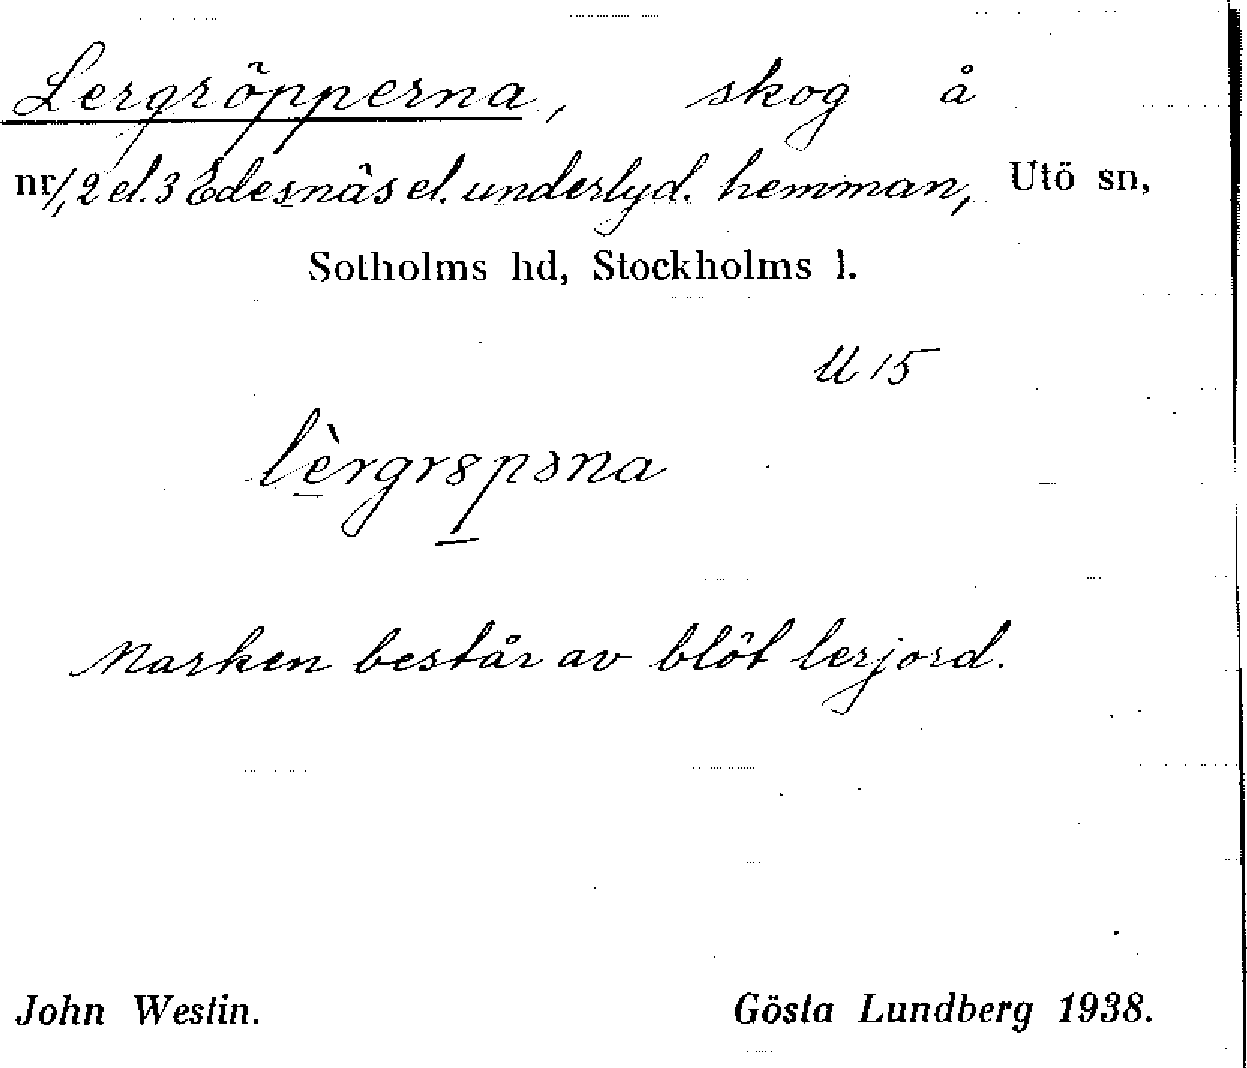 Lergröpperna, skog å
nr 1, 2 el. 3 Edesnäs el. underlyd. hemman, Utö sn,
Sotholms hd, Stockholms l.
U 15
lèrgr8pəna
Marken består av blöt lerjord.
John Westin. Gösta Lundberg 1938.